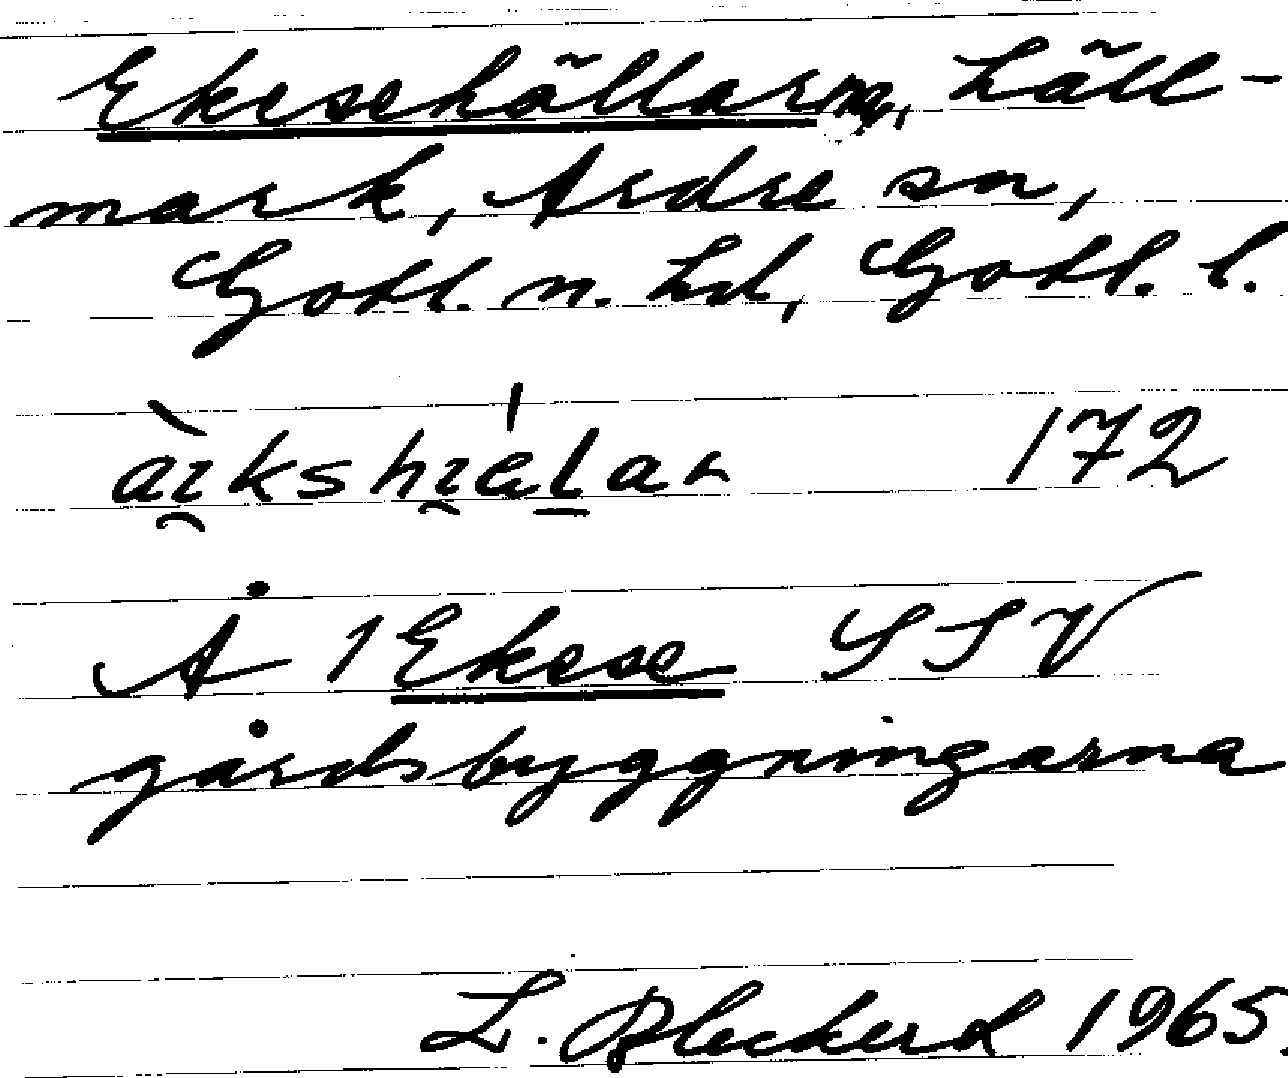 Ekesehällarna, häll-
mark, Ardre sn,
Gotl. n. hd, Gotl. l.
172
Å 1 Ekese SSV
gårdsbyggningarna
1965.